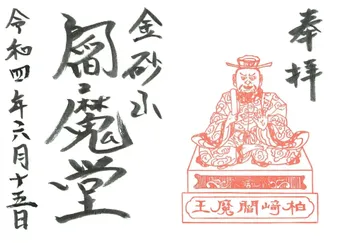 奉拝
柏崎閻魔王
金砂山
閻魔堂
令和四年六月十五日